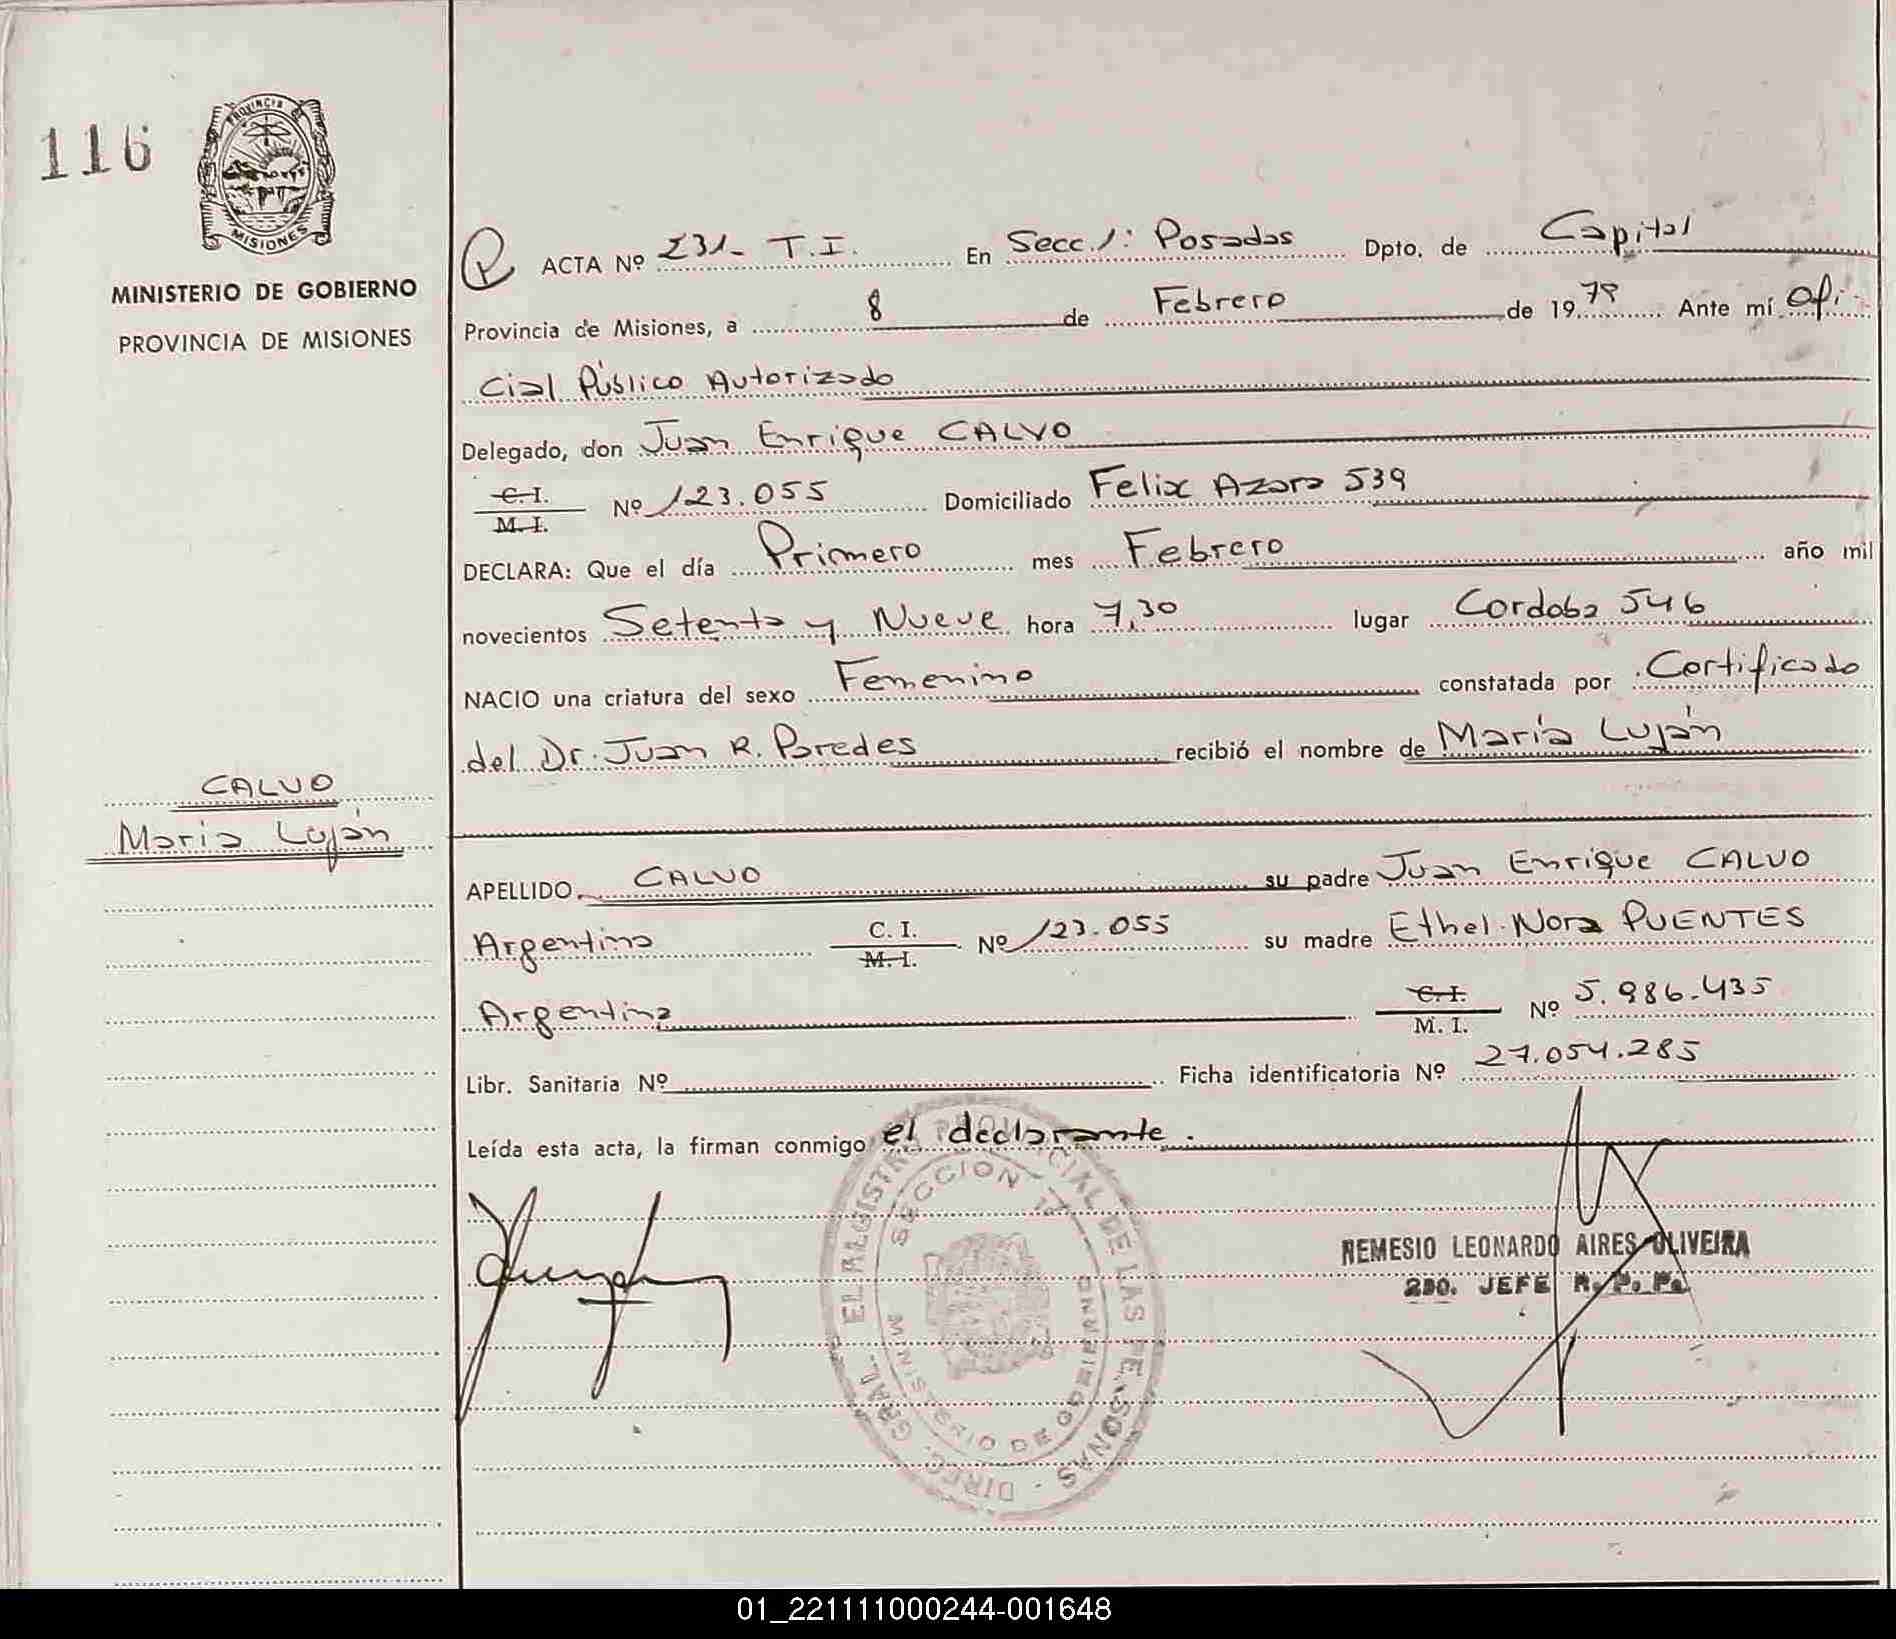 116
PROVINCIA DE
MISIONES
MINISTERIO DE GOBIERNO
PROVINCIA DE MISIONES
CALVO
María Luján
ACTA Nº 231- T.I. En Secc. 1: Posadas Dpto. de Capital
Provincia de Misiones, a 8 de Febrero de 1979 Ante mí Ofi-
cial Público Autorizado
Delegado, don Juan Enrique CALVO
C. I.
M. I. Nº 123.055 Domiciliado Felix Azara 539
DECLARA: Que el día Primero mes Febrero año mil
novecientos Setenta y Nueve hora 7,30 lugar Cordoba 546
NACIO una criatura del sexo Femenino constatada por Certificado
del Dr. Juan R. Paredes recibió el nombre de María Luján
APELLIDO CALVO su padre Juan Enrique CALVO
Argentino C. I. Nº 123.055 su madre Ethel Nora PUENTES
M. I.
Argentina C. I. Nº 5.986.435
M. I.
Libr. Sanitaria Nº Ficha identificatoria Nº 27.054.285
Leída esta acta, la firman conmigo el declarante.
DIREC. GRAL. EL REGISTRO PROVINCIAL DE LAS PERSONAS
SECCION 1a
MINISTERIO DE GOBIERNO
REMESIO LEONARDO AIRES OLIVEIRA
2DO. JEFE R. P. P.
01_221111000244-001648